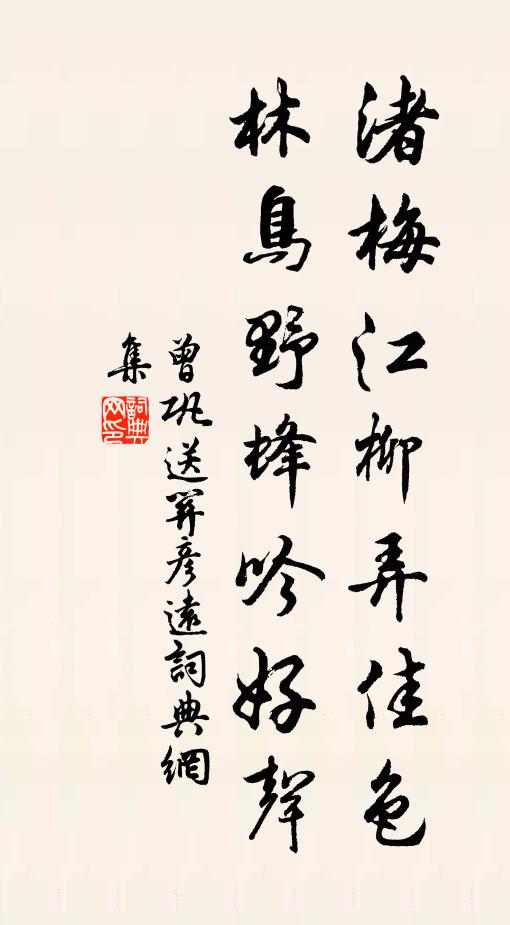 渚梅江柳弄佳色
林鳥野蜂吟好聲
曾巩送關彦遠詞典網
集
詞典
网印